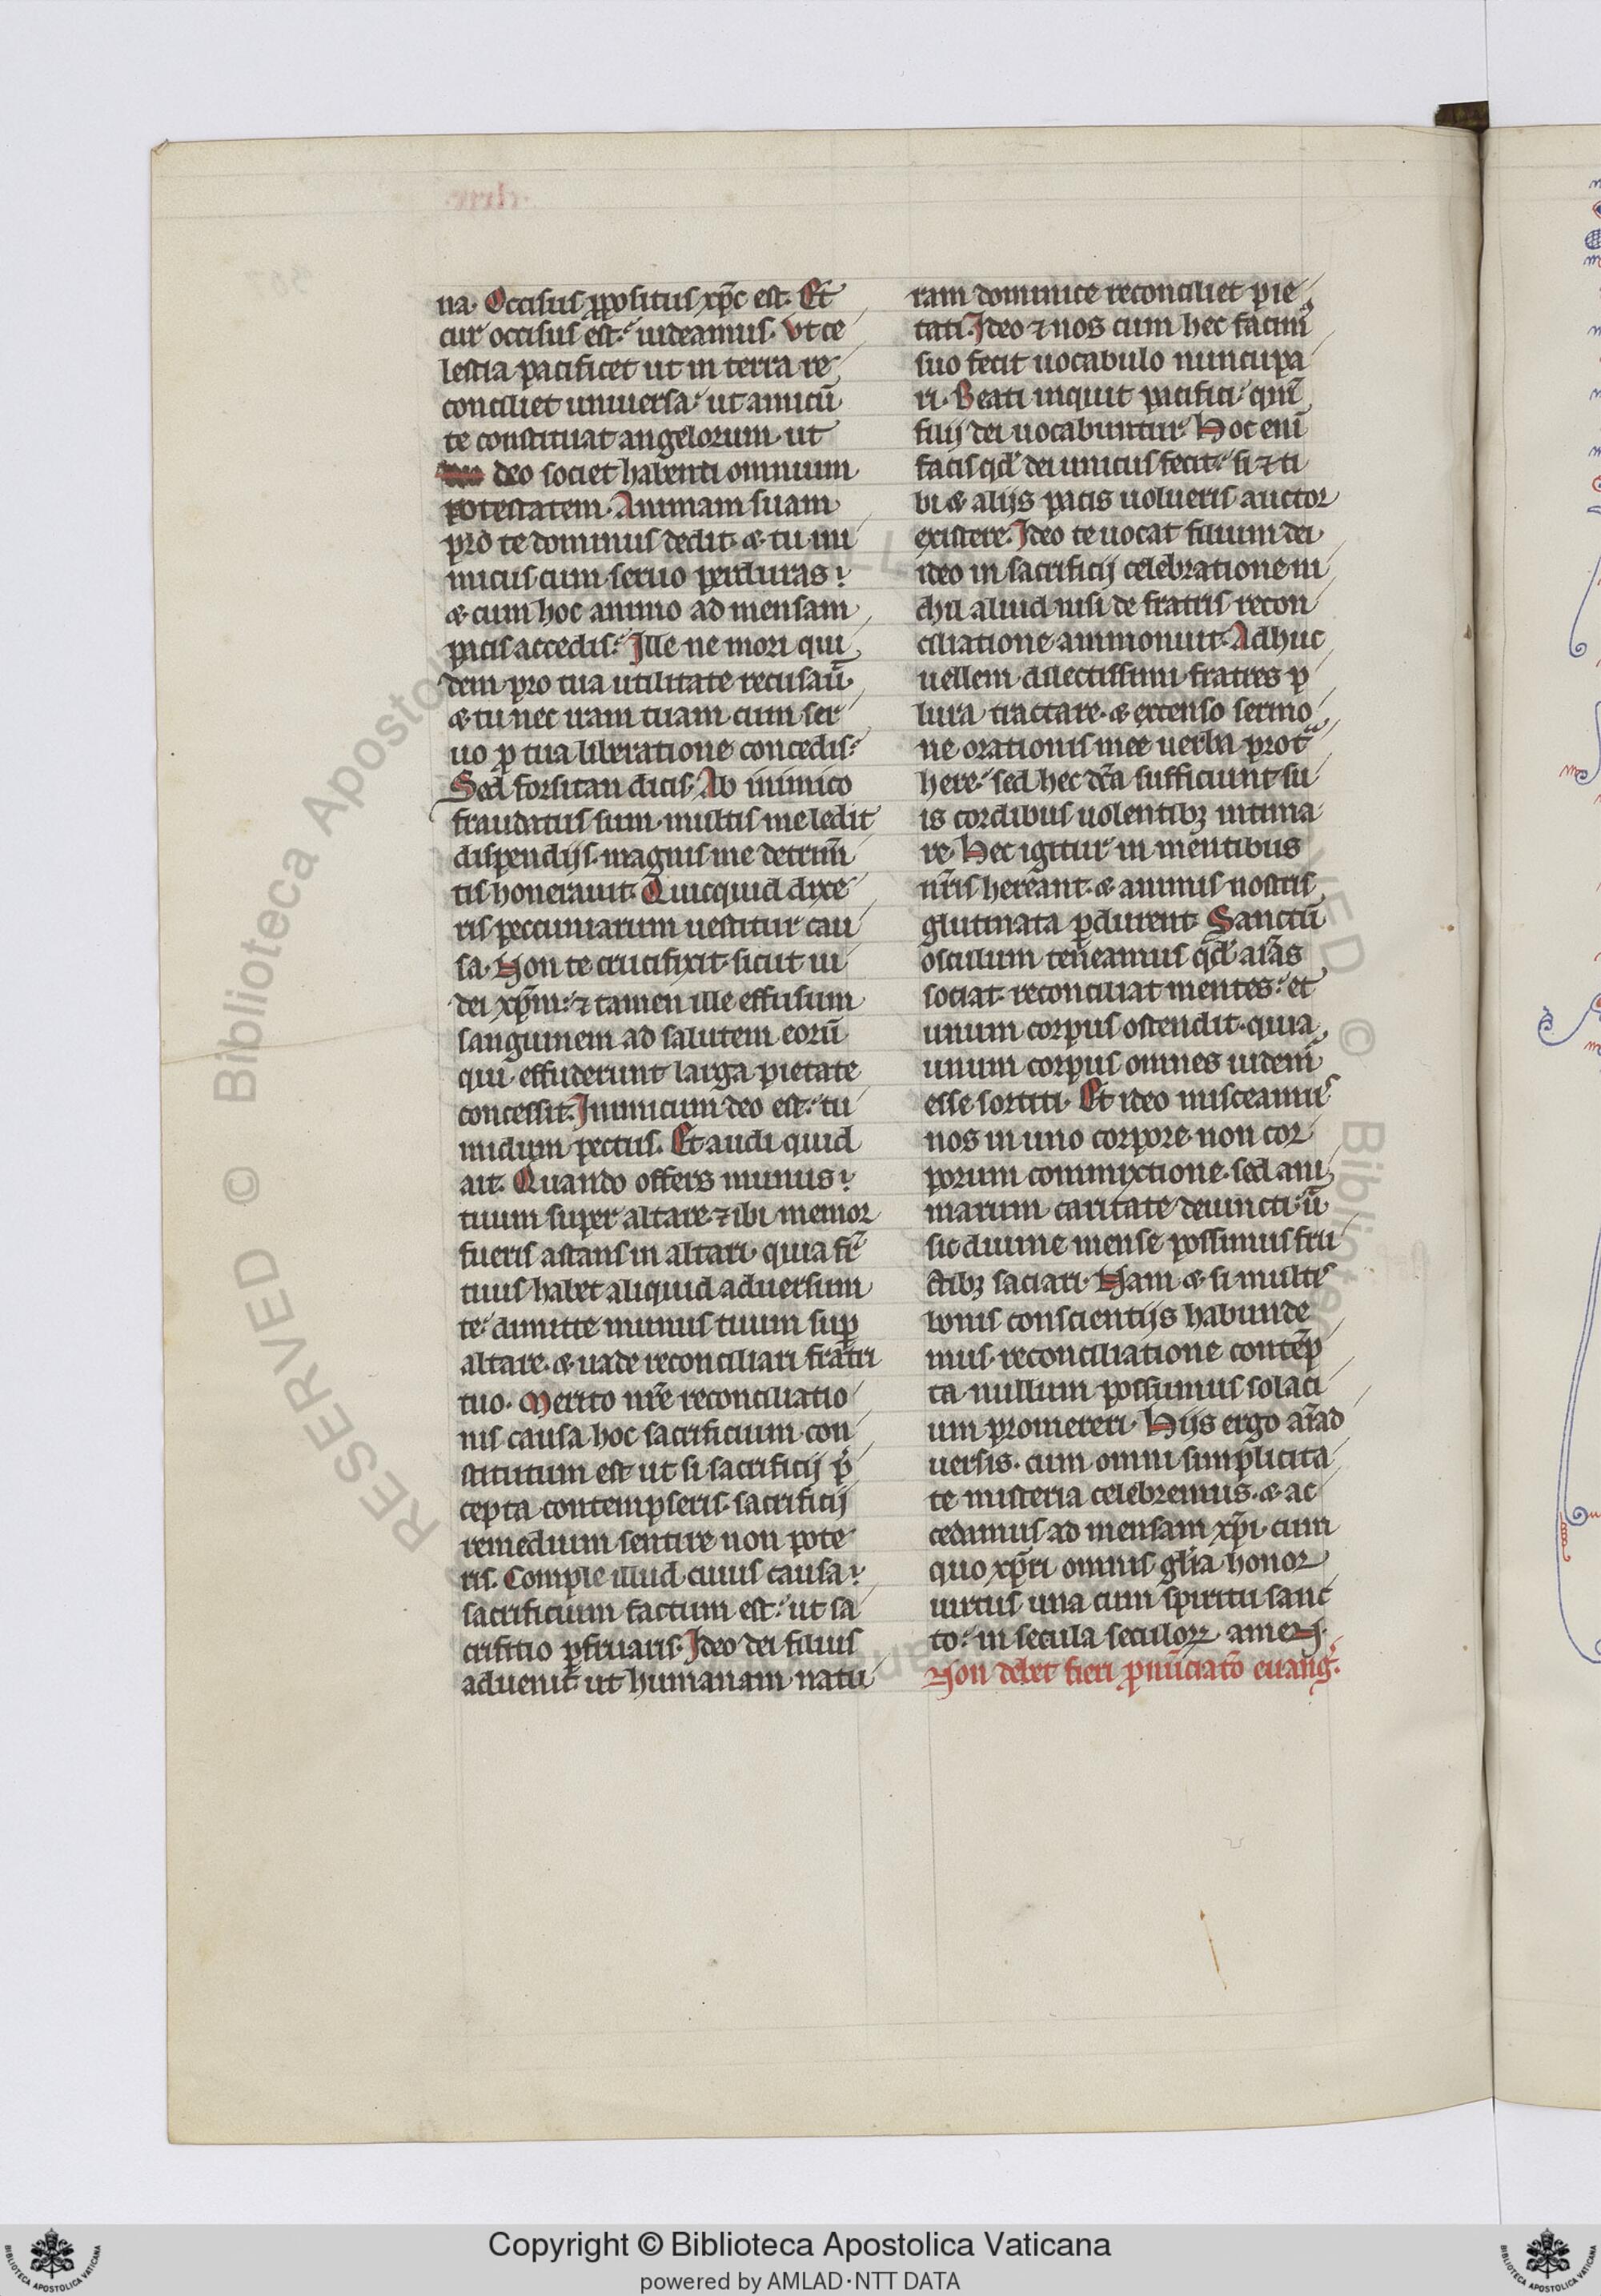 na. Occisus ꝓpositus xp̄c est. Et
cur occisus est. uideamus. Vt ce
lestia pacificet ut in terra re
conciliet uniuersa. ut amicū
te constituat angelorum. ut
deo societ habenti omnium
potestatem. Animam suam
pro te dominus dedit. & tu ini
micus cum seruo perduras?
& cum hoc animo ad mensam
pacis accedis. Ille ne mori qui
dem pro tua utilitate recusau̅
& tu nec iram tuam cum ser
uo ꝓ tua liberatione concedis.
Sed forsitan dicis. Ab inimico
fraudatus sum. multis me ledit
dispendijs. magnis me detrim̅
tis honerauit. Quicquid dixe
ris peccuniarum uestitur cau
sa. Non te crucifixit. sicut iu
dei xp̄m. ⁊ tamen ille effusum
sanguinem ad salutem eorū
qui effuderunt larga pietate
concessit. Inimicum deo est. tu
midum pectus. Et audi quid
ait. Quando offers munus?
tuum super altare. ⁊ ibi memor
fueris astans in altari. quia fr̄
tuus habet aliquid aduersum
te. dimitte munus tuum suꝑ
altare. & uade reconciliari fratri
tuo. Merito nr̄e reconciliatio
nis causa hoc sacrificium con
stitutum est ut si sacrificij p̄
cepta contempseris. sacrificij
remedium sentire non pote
ris. Comple illud cuius causa?
sacrificium factum est. ut sa
crifitio ꝑfruaris. Ideo dei filius
aduenit. ut humanam natu
ram dominice reconciliet pie
tati. Ideo ⁊ nos cum hec facimꝰ
suo fecit uocabulo nuncupa
ri. Beati inquit pacifici. qm̅
filij dei uocabuntur. Hoc enī
facis qd̄ dei unicus fecit. si ⁊ ti
bi & alijs pacis uolueris auctor
existere. Ideo te uocat filium dei
ideo in sacrificij celebratione ni
chil aliud nisi de fratris recon
ciliatione ammonuit. Adhuc
uellem dilectissimi fratres p
lura tractare. & extenso sermo
ne orationis mee uerba protͣ
here. sed hec dc̄a sufficiunt su
is cordibus uolentibꝫ intima
re. Hec igitur in mentibus
nr̄is hereant. & animis nostris
glutinata ꝑdurent. Sanctū
osculum teneamus qd̄ aīas
sociat. reconciliat mentes. et
unum corpus ostendit. quia
unum corpus omnes uidemꝰ
esse sortiti. Et ideo misceamus
nos in uno corpore. non cor
porum commixtione. sed ani
marum caritate deuincti. ū
sic diuine mense possimus fru
ctibꝫ saciari. Nam & si multis
bonis conscientijs habunde
mus. reconciliatione contēp
ta nullum possumus solaci
um promereri. Hijs ergo aīad
uersis. cum omni simplicita
te misteria celebremus. & ac
cedamus ad mensam xp̄i. cum
quo xp̄ti omnis gl̄ia honor
uirtus una cum spiritu sanc
to. in secula seculoꝝ. amen.
Non debet fieri ꝓnūciatō euang̅.
RESERVED © Biblioteca Apostolica
Copyright © Biblioteca Apostolica Vaticana
powered by AMLAD·NTT DATA